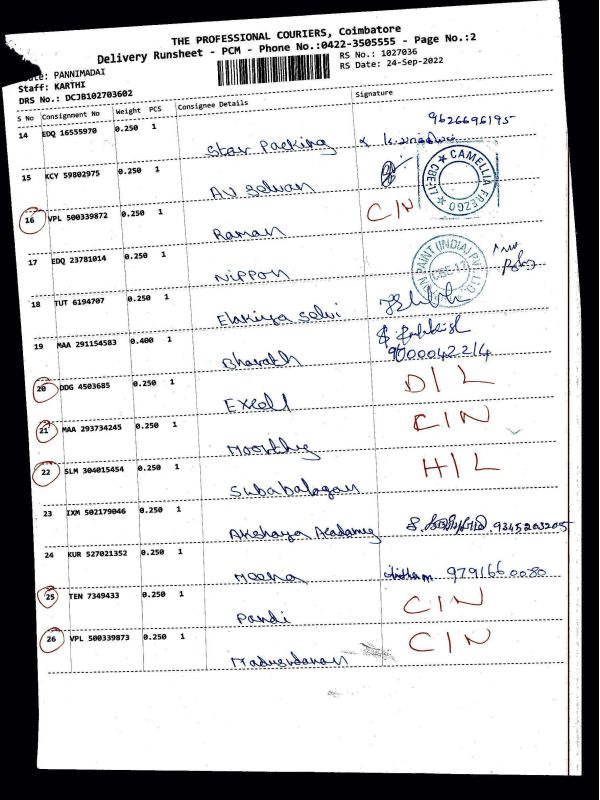 THE PROFESSIONAL COURIERS, Coimbatore
Delivery Runsheet - PCM - Phone No.:0422-3505555 - Page No.:2
PANNIMADAI
RS No.: 1027036
Staff: KARTHI
RS Date: 24-Sep-2022
DRS No.: DCJB102703602
S No Consignment No Weight PCS Consignee Details Signature
14 EDQ 16555970 0.250 1 Star Packing 9626696195
15 KCY 59802975 0.250 1 AV Selvan
★ CAMELLIA ★ FREZGO CBE-17
16 VPL 500339872 0.250 1 Raman C/N
17 EDQ 23781014 0.250 1 Nippon
PAINT (INDIA) PVT LTD CBE-17
18 TUT 6194707 0.250 1 Elakiya Selvi
19 MAA 291154583 0.400 1 Bharath 9000042214
20 DDG 4503685 0.250 1 Excell D/L
21 MAA 293734245 0.250 1 Moorthy C/N
22 SLM 304015454 0.250 1 Subabalagan H/L
23 IXM 502179046 0.250 1 Akshaya Academy 9345203205
24 KUR 527021352 0.250 1 Meena 9791660080
25 TEN 7349433 0.250 1 Pandi C/N
26 VPL 500339873 0.250 1 C/N